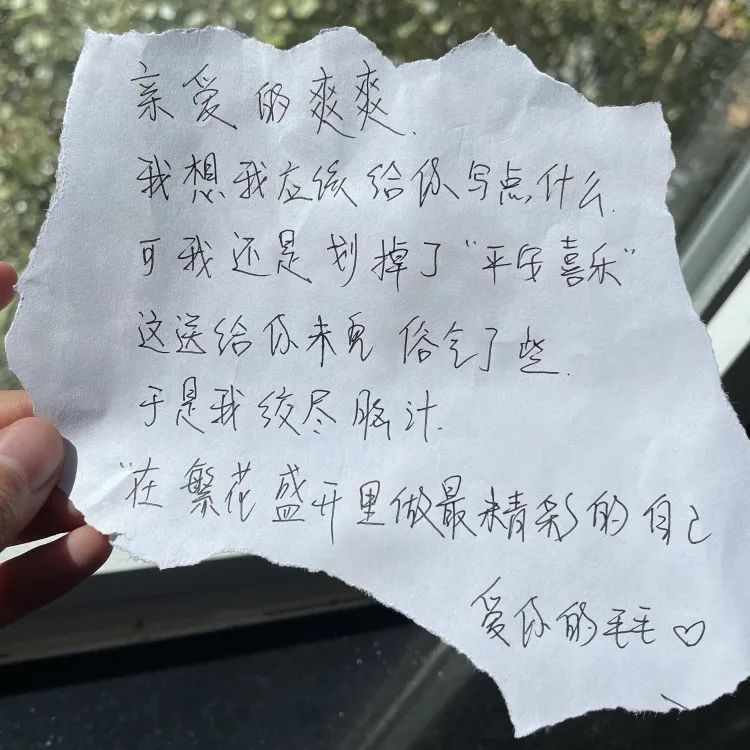 亲爱的爽爽.
我想我应该给你写点什么.
可我还是划掉了“平安喜乐”
这送给你未免俗气了些.
于是我绞尽脑汁.
“在繁花盛开里做最精彩的自己
爱你的毛毛♡